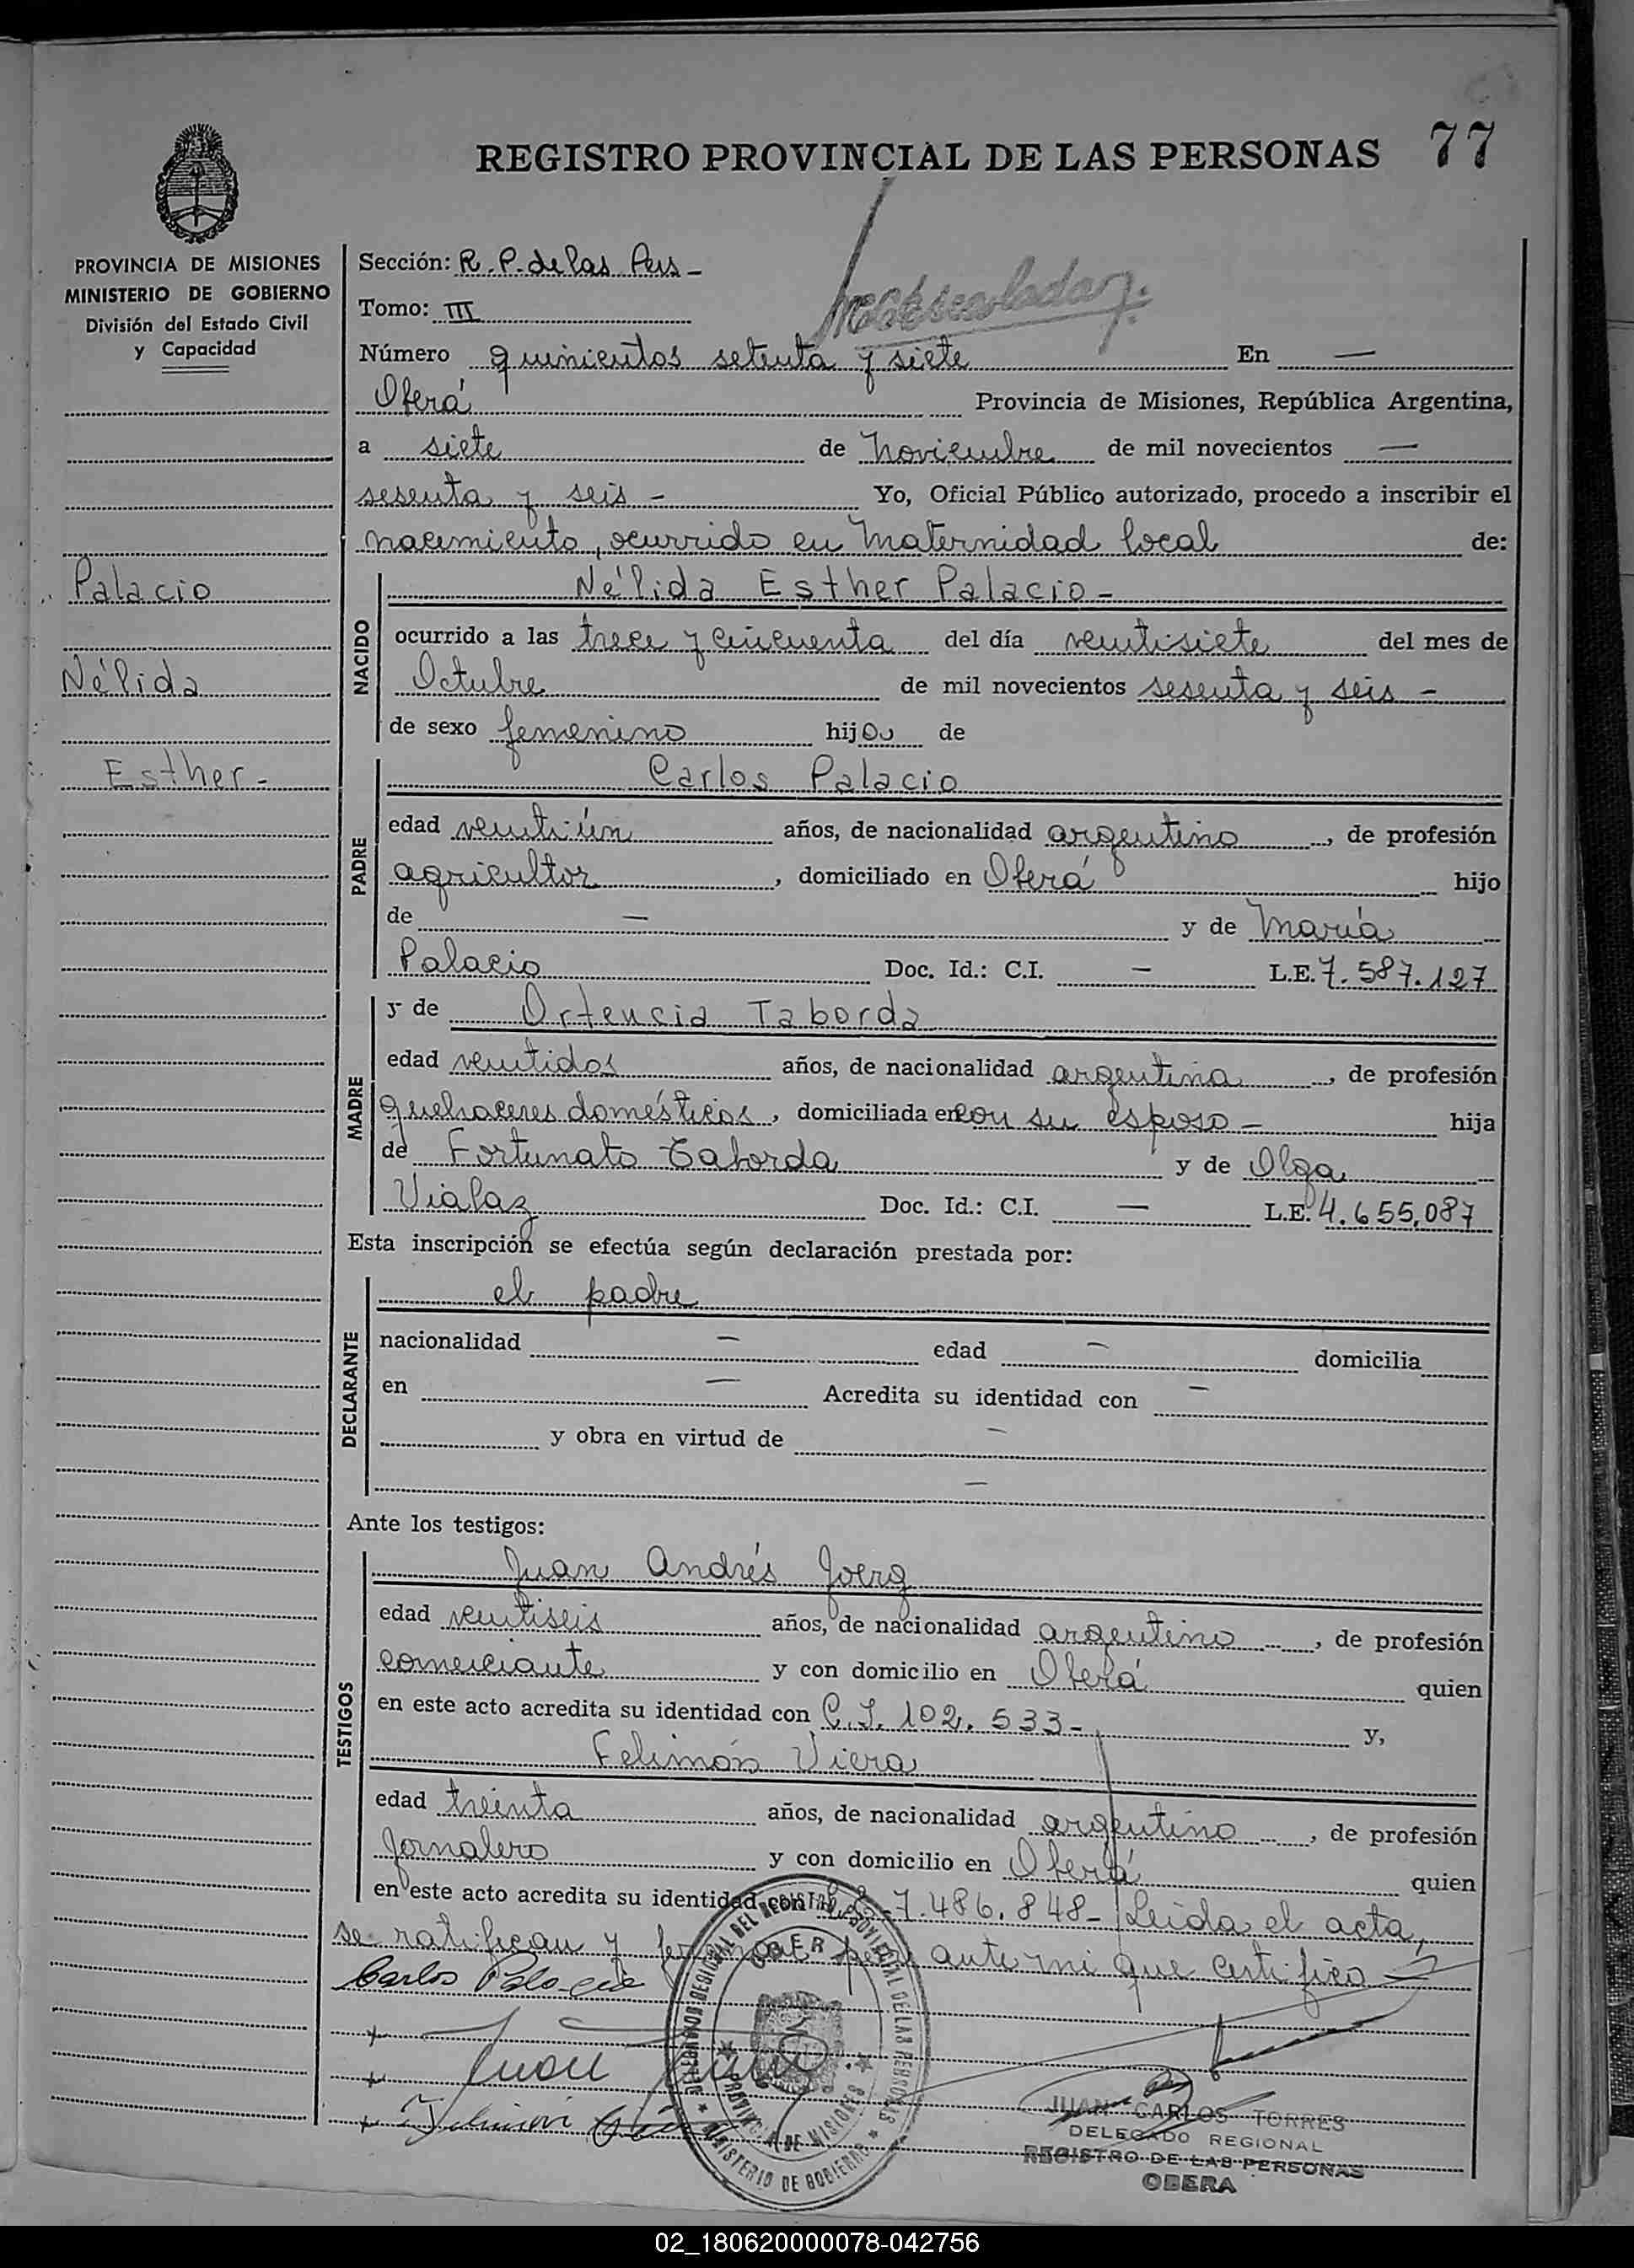 REGISTRO PROVINCIAL DE LAS PERSONAS 77
PROVINCIA DE MISIONES
MINISTERIO DE GOBIERNO
División del Estado Civil
y Capacidad
Palacio
Nélida
Esther -
Sección: R. P. de las Pers -
Tomo: III
Número quinientos setenta y siete En —
Oberá Provincia de Misiones, República Argentina,
a siete de Noviembre de mil novecientos —
sesenta y seis - Yo, Oficial Público autorizado, procedo a inscribir el
nacimiento, ocurrido en Maternidad local de:
NACIDO
Nélida Esther Palacio -
ocurrido a las trece y cincuenta del día ventisiete del mes de
Octubre de mil novecientos sesenta y seis -
de sexo femenino hija de
PADRE
Carlos Palacio
edad ventiún años, de nacionalidad argentino, de profesión
agricultor, domiciliado en Oberá hijo
de — y de María
Palacio Doc. Id.: C.I. — L.E. 7.587.127
MADRE
y de Ortencia Taborda
edad ventidos años, de nacionalidad argentina, de profesión
quehaceres domésticos, domiciliada en con su esposo - hija
de Fortunato Taborda y de Olga
Vialaz Doc. Id.: C.I. — L.E. 4.655.087
Esta inscripción se efectúa según declaración prestada por:
DECLARANTE
el padre
nacionalidad — edad — domicilia
en — Acredita su identidad con —
y obra en virtud de —
—
Ante los testigos:
TESTIGOS
Juan Andrés Joerg
edad ventiseis años, de nacionalidad argentino, de profesión
comerciante y con domicilio en Oberá quien
en este acto acredita su identidad con C.I. 102.533- y,
Felimón Viera
edad treinta años, de nacionalidad argentino, de profesión
Jornalero y con domicilio en Oberá quien
en este acto acredita su identidad con L.E. 7.486.848- Leida el acta,
se ratifican y firman por ante mi que certifico
Carlos Palacio
Juan
DELEGACION REGIONAL DEL REGISTRO PROVINCIAL DE LAS PERSONAS
OBERA
PROVINCIA DE MISIONES
MINISTERIO DE GOBIERNO
JUAN CARLOS TORRES
DELEGADO REGIONAL
REGISTRO DE LAS PERSONAS
OBERA
02_180620000078-042756